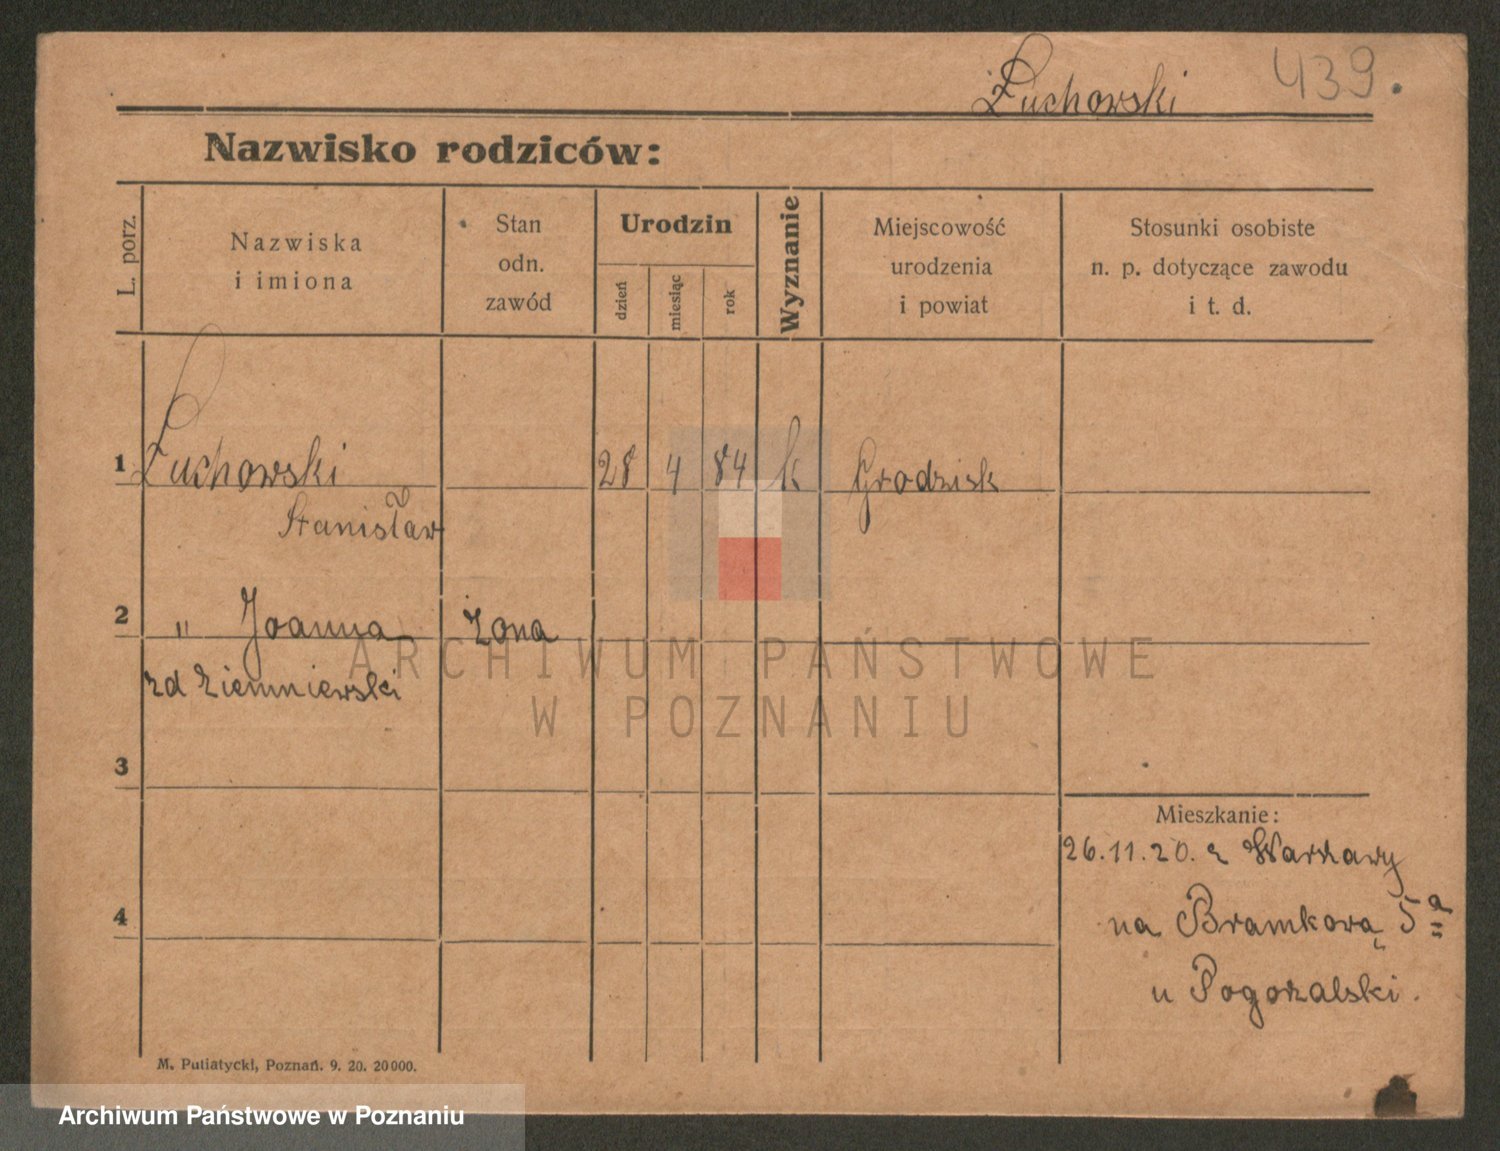 Żuchowski 439.
Nazwisko rodziców:
L. porz.
Nazwiska
i imiona
Stan
odn.
zawód
Urodzin
dzień
miesiąc
rok
Wyznanie
Miejscowość
urodzenia
i powiat
Stosunki osobiste
n. p. dotyczące zawodu
i t. d.
1 Żuchowski 28 4 84 k Grodzisk
Stanisław
2 " Joanna żona
zd Ziemniewski
3
Mieszkanie:
26.11.20. z Warszawy
4
na Bramkową 5a
u Pogorzalski.
M. Putiatycki, Poznań. 9. 20. 20000.
ARCHIWUM PAŃSTWOWE
W POZNANIU
Archiwum Państwowe w Poznaniu